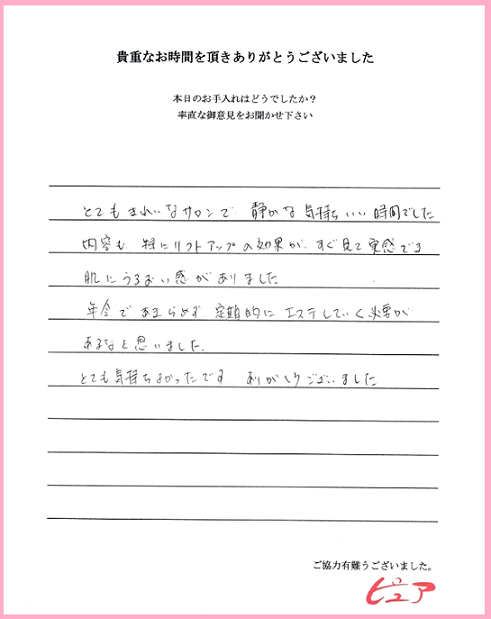 貴重なお時間を頂きありがとうございました
本日のお手入れはどうでしたか？
率直な御意見をお聞かせ下さい
とてもきれいなサロンで 静かな気持ちいい時間でした
内容も 特にリフトアップの効果が、すぐ見て実感でき
肌にうるおい感がありました
年令であきらめず、定期的に エステしていく必要が
あるなと思いました。
とても気持ちよかったです ありがとうございました
ご協力有難うございました。
ピュア